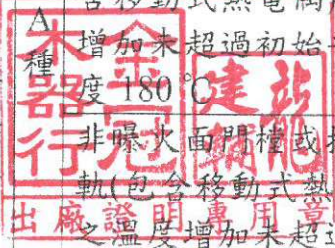 含移動式熱電偶
A
種
增加未超過初始
度 180℃
非曝火面門檔或
軌(包含移動式熱
之溫度增加未超
金冠
木器行
出廠證明專用章